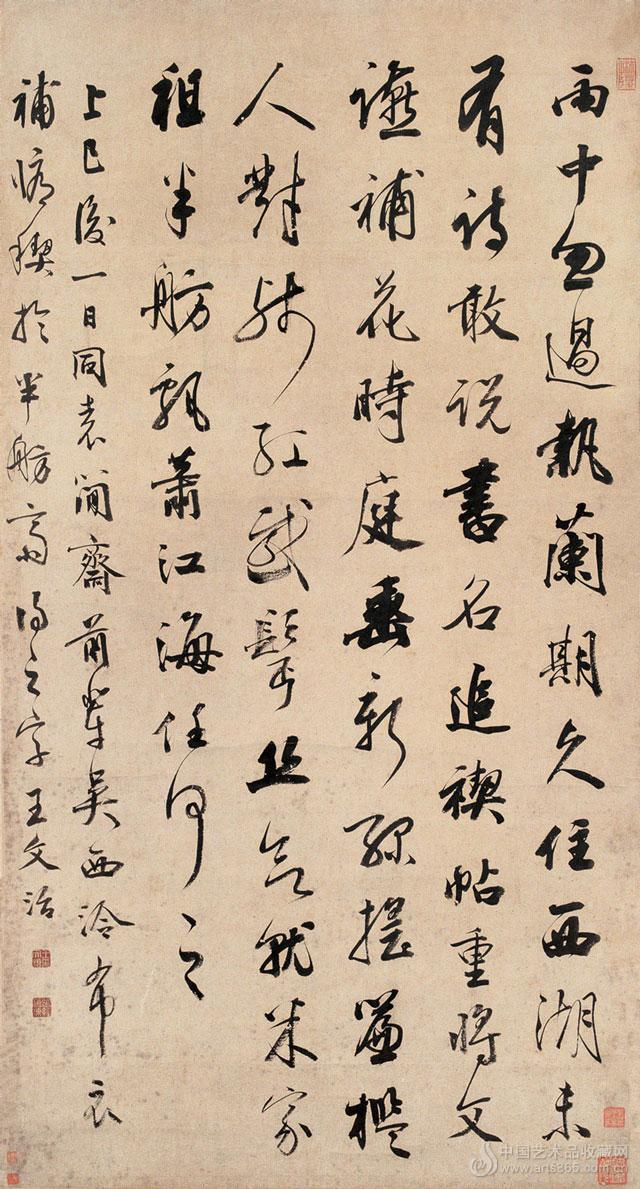 雨中忽過執蘭期久住西湖未
有詩敢説書名追禊帖重將文
讌補花時庭垂新綠搖簾檻
人對殘紅感鬢絲合就米家
祖半舫飄蕭江海任何之
上巳後一日同袁簡齋前輩吳西泠布衣
補脩禊於半舫齋得之字王文治
中国艺术品收藏网
www.arts365.com.cn